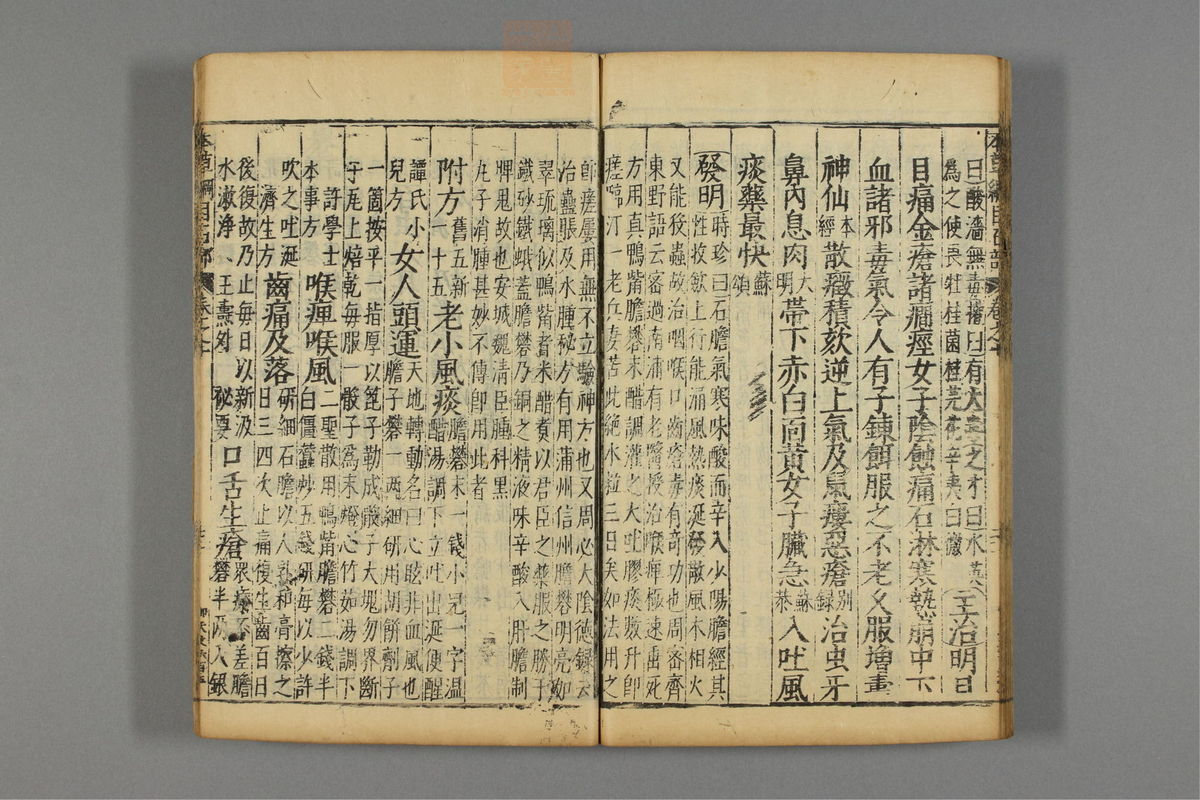 本草綱目石部 卷之十
曰酸濇無毒權曰有大毒之才曰水英
為之使畏牡桂菌桂芫花辛夷白微
主治明目
目痛金瘡諸癇痙女子陰蝕痛石淋寒熱崩中下
血諸邪毒氣令人有子鍊餌服之不老久服增壽
神仙本經散癥積欬逆上氣及鼠瘻惡瘡別錄治虫牙
鼻內息肉大明帶下赤白面黃女子臟急蘇恭入吐風
痰藥最快蘇頌
發明時珍曰石膽氣寒味酸而辛入少陽膽經其
性收斂上行能涌風熱痰涎發散風木相火
又能殺蟲故治咽喉口齒瘡毒有奇功也周密齊
東野語云密過南浦有老醫授治喉痹極速垂死
方用真鴨觜膽礬末醋調灌之大吐膠痰數升即
瘥臨汀一老兵妻苦此絕水粒三日矣如法用之
即瘥屢用無不立驗神方也又周必大陰德錄云
治蠱脹及水腫秘方有用蒲州信州膽礬明亮如
翠琉璃似鴨觜者米醋煮以君臣之藥服之勝于
鐵砂鐵蛾蓋膽礬乃銅之精液味辛酸入肝膽制
脾鬼故也安城魏清臣腫科黑
丸子消腫甚妙不傳即用此者
附方舊五新一十五老小風痰膽礬末一錢小兒一字溫
醋湯調下立吐出涎便醒
譚氏小兒方女人頭運天地轉動名曰心眩非血風也
膽子礬一兩細研用胡餅劑子
一箇按平一指厚以篦子勒成骰子大塊勿界斷
於瓦上焙乾每服一骰子為末燈心竹茹湯調下
許學士本事方喉痹喉風二聖散用鴨觜膽礬二錢半
白僵蠶炒五錢研每以少許
吹之吐涎濟生方齒痛及落研細石膽以人乳和膏擦之
日三四次止痛復生齒百日
後復故乃止每日以新汲
水漱淨王燾外秘要口舌生瘡眾療不差膽
礬半兩入銀
本草綱目石部 卷之十